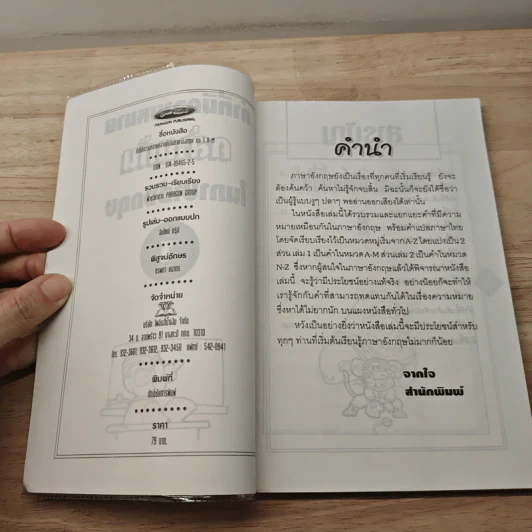 PARAGON PUBLISHING
ชื่อหนังสือ
ISBN
รวบรวม-เรียบเรียง
ฝ่ายวิชาการ PARAGON GROUP
รูปเล่ม-ออกแบบปก
พิสูจน์อักษร
จัดจำหน่าย
โทร. 932-3681, 932-3612, 932-3450 แฟกซ์ : 542-0941
พิมพ์ที่
ราคา
79 บาท.
คำนำ
ภาษาอังกฤษยังเป็นเรื่องที่ทุกคนที่เริ่มเรียนรู้ ยังจะ
ต้องค้นคว้า ค้นหาไม่รู้จักจบสิ้น มิฉะนั้นก็จะยังได้ชื่อว่า
เป็นผู้รู้แบบงูๆ ปลาๆ พออ่านออกเสียงได้เท่านั้น
ในหนังสือเล่มนี้ได้รวบรวมและแยกแยะคำที่มีความ
หมายเหมือนกันในภาษาอังกฤษ พร้อมคำแปลภาษาไทย
โดยจัดเรียงเรียงไว้เป็นหมวดหมู่เริ่มจากA-Zโดยแบ่งเป็น 2
ส่วน เล่ม 1 เป็นคำในหมวด A-M เล่มส่วน 2 เป็นคำในหมวด
N-Z ซึ่งหากผู้สนใจในภาษาอังกฤษแล้วได้พิจารณาหนังสือ
เล่มนี้ จะรู้ว่ามีประโยชน์อย่างแท้จริง อย่างน้อยก็จะทำให้
เรารู้จักกับคำที่สามารถทดแทนกันได้ในเรื่องความหมาย
ซึ่งหาได้ไม่ยากนัก บนแผงหนังสือทั่วไป
หวังเป็นอย่างยิ่งว่าหนังสือเล่มนี้จะมีประโยชน์สำหรับ
ทุกๆ ท่านที่เริ่มต้นเรียนรู้ภาษาอังกฤษไม่มากก็น้อย
จากใจ
สำนักพิมพ์